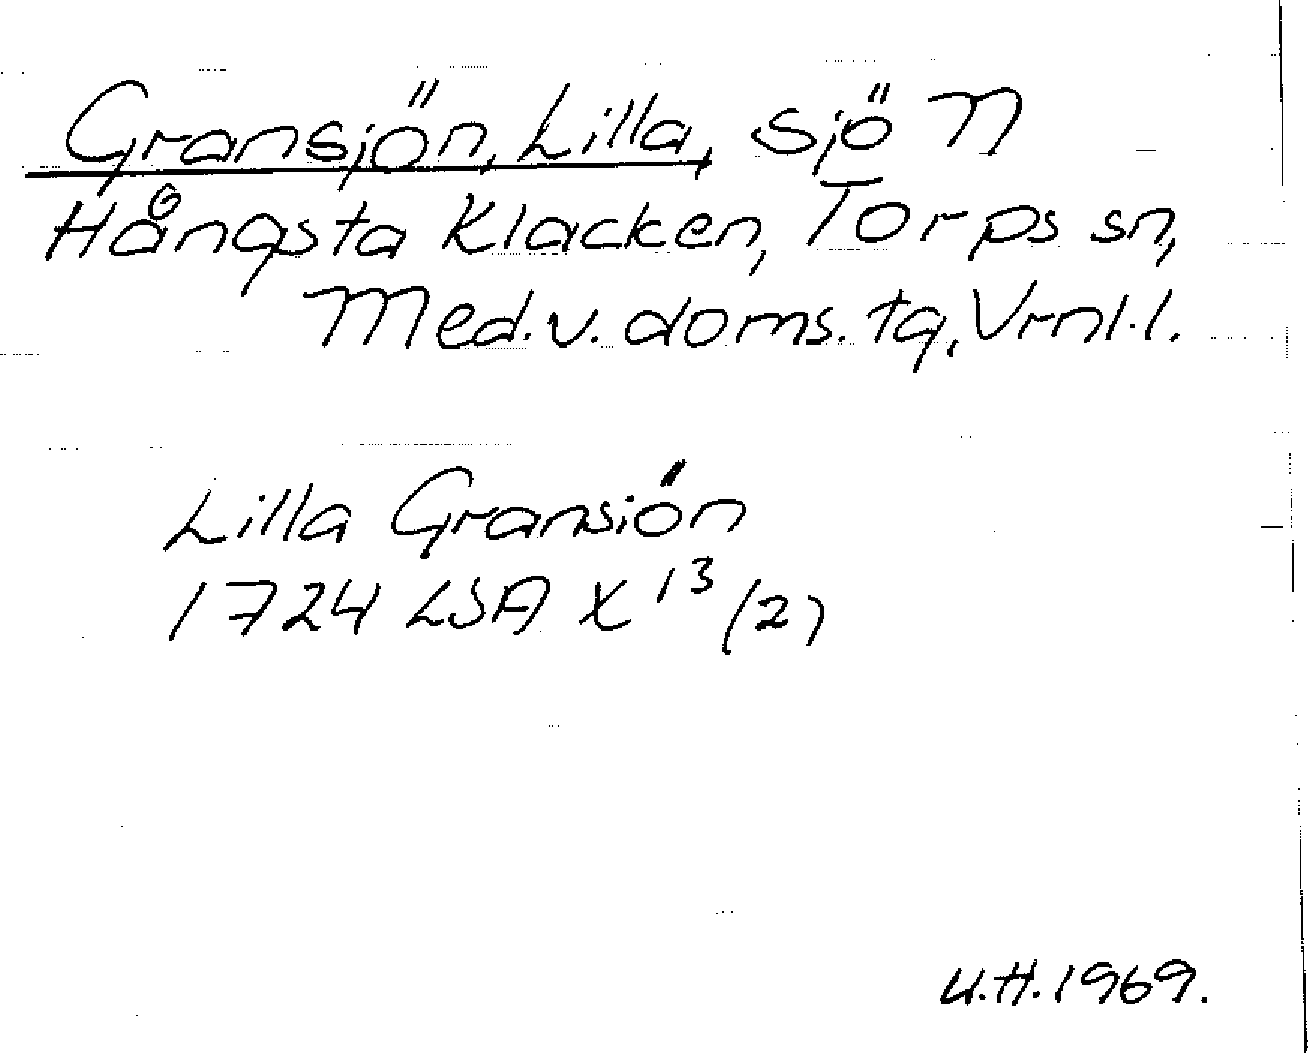 Gransjön, Lilla, sjö N
Hångsta Klacken, Torps sn,
Med.v. doms. tg, Vrnl.l.
Lilla Gransiön
1724 LSA X 13 (2)
U.H. 1969.